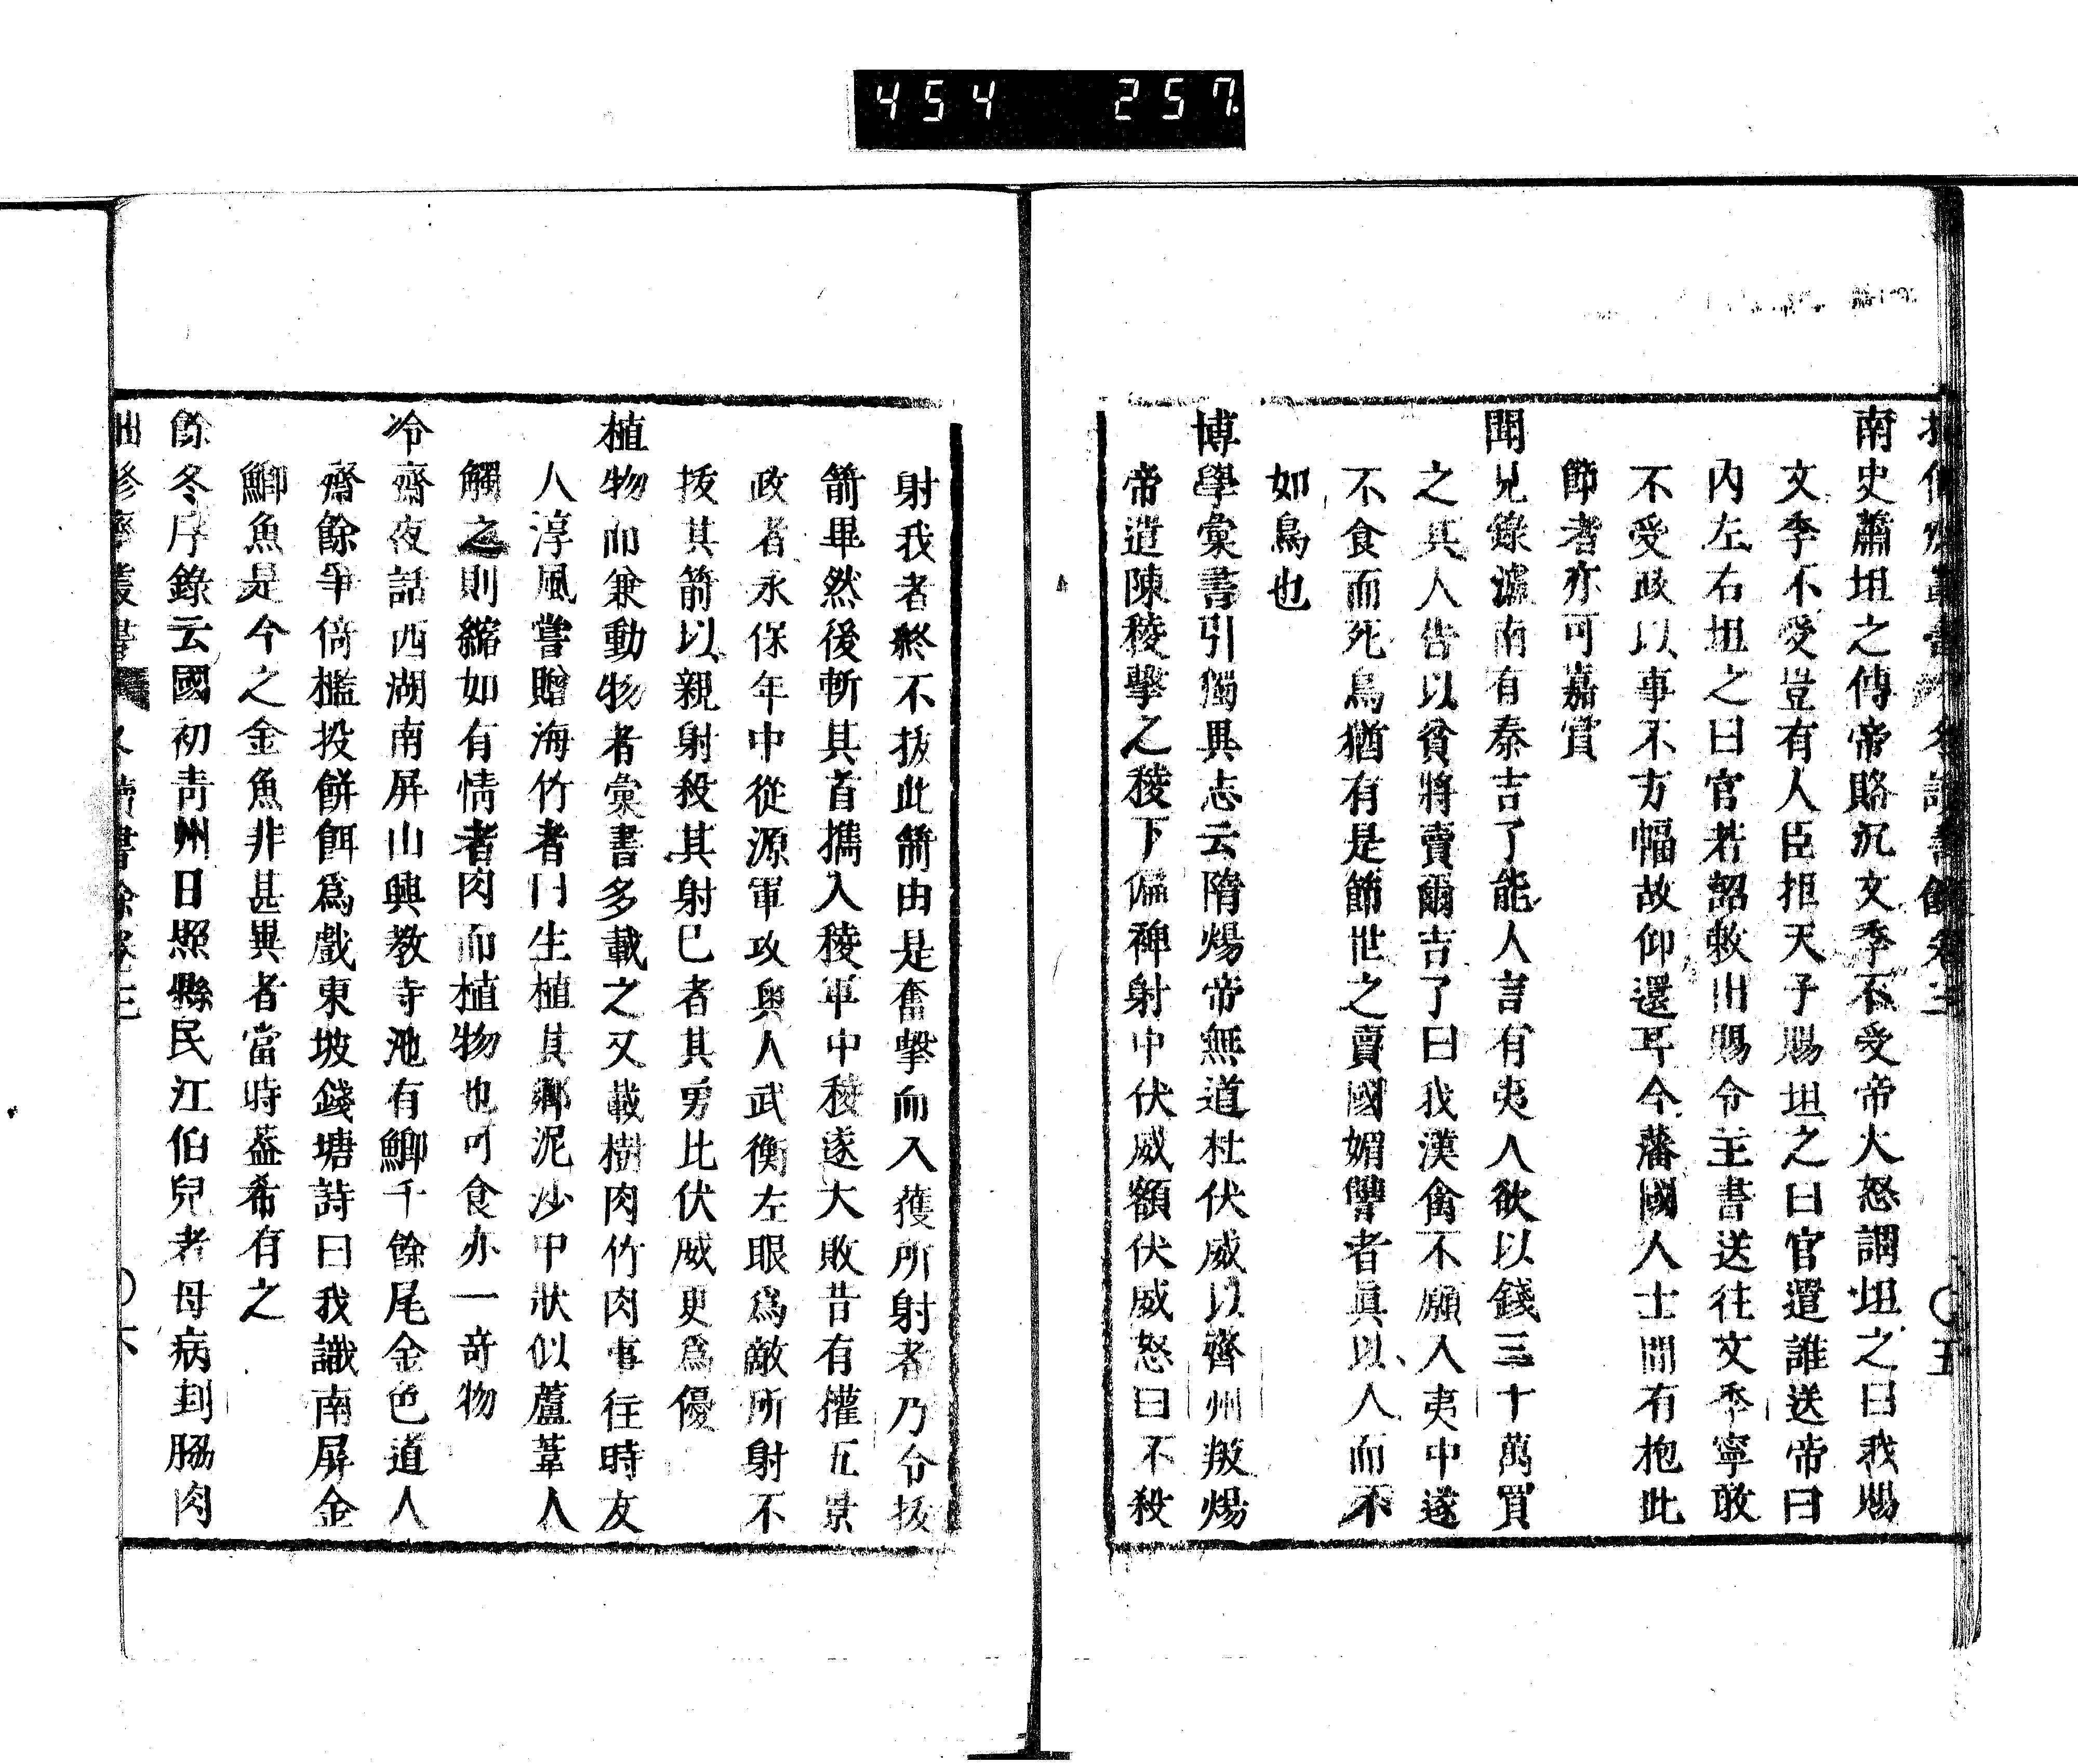 454 257
南史蕭坦之傳帝賂沉文季不受帝大怒謂坦之曰我賜
文季不受豈有人臣拒天子賜坦之曰官遣誰送帝曰
內左右坦之曰官若詔敕出賜令主書送往文季寧敢
不受政以事不方幅故仰還耳今藩國人士間有抱此
節者亦可嘉賞
聞見錄瀘南有秦吉了能人言有夷人欲以錢三十萬買
之其人告以貧將賣爾吉了曰我漢禽不願入夷中遂
不食而死鳥猶有是節世之賣國媚讐者眞以人而不
如鳥也
博學彙書引獨異志云隋煬帝無道杜伏威以齊州叛煬
帝遣陳稜擊之稜下偏裨射中伏威額伏威怒曰不殺
射我者終不拔此箭由是奮擊而入獲所射者乃令拔
箭畢然後斬其首擕入稜軍中稜遂大敗昔有權五景
政者永保年中從源軍攻奧人武衡左眼爲敵所射不
拔其箭以親射殺其射已者其勇比伏威更爲優
植物而兼動物者彙書多載之又載樹肉竹肉事往時友
人淳風嘗贈海竹者曰生植其鄕泥沙中狀似蘆葦人
觸之則縮如有情者肉而植物也可食亦一奇物
冷齋夜話西湖南屏山興教寺池有鯽千餘尾金色道人
齋餘爭倚檻投餅餌爲戲東坡錢塘詩曰我識南屏金
鯽魚是今之金魚非甚異者當時葢希有之
餘冬序錄云國初靑州日照縣民江伯兒者母病刲脇肉